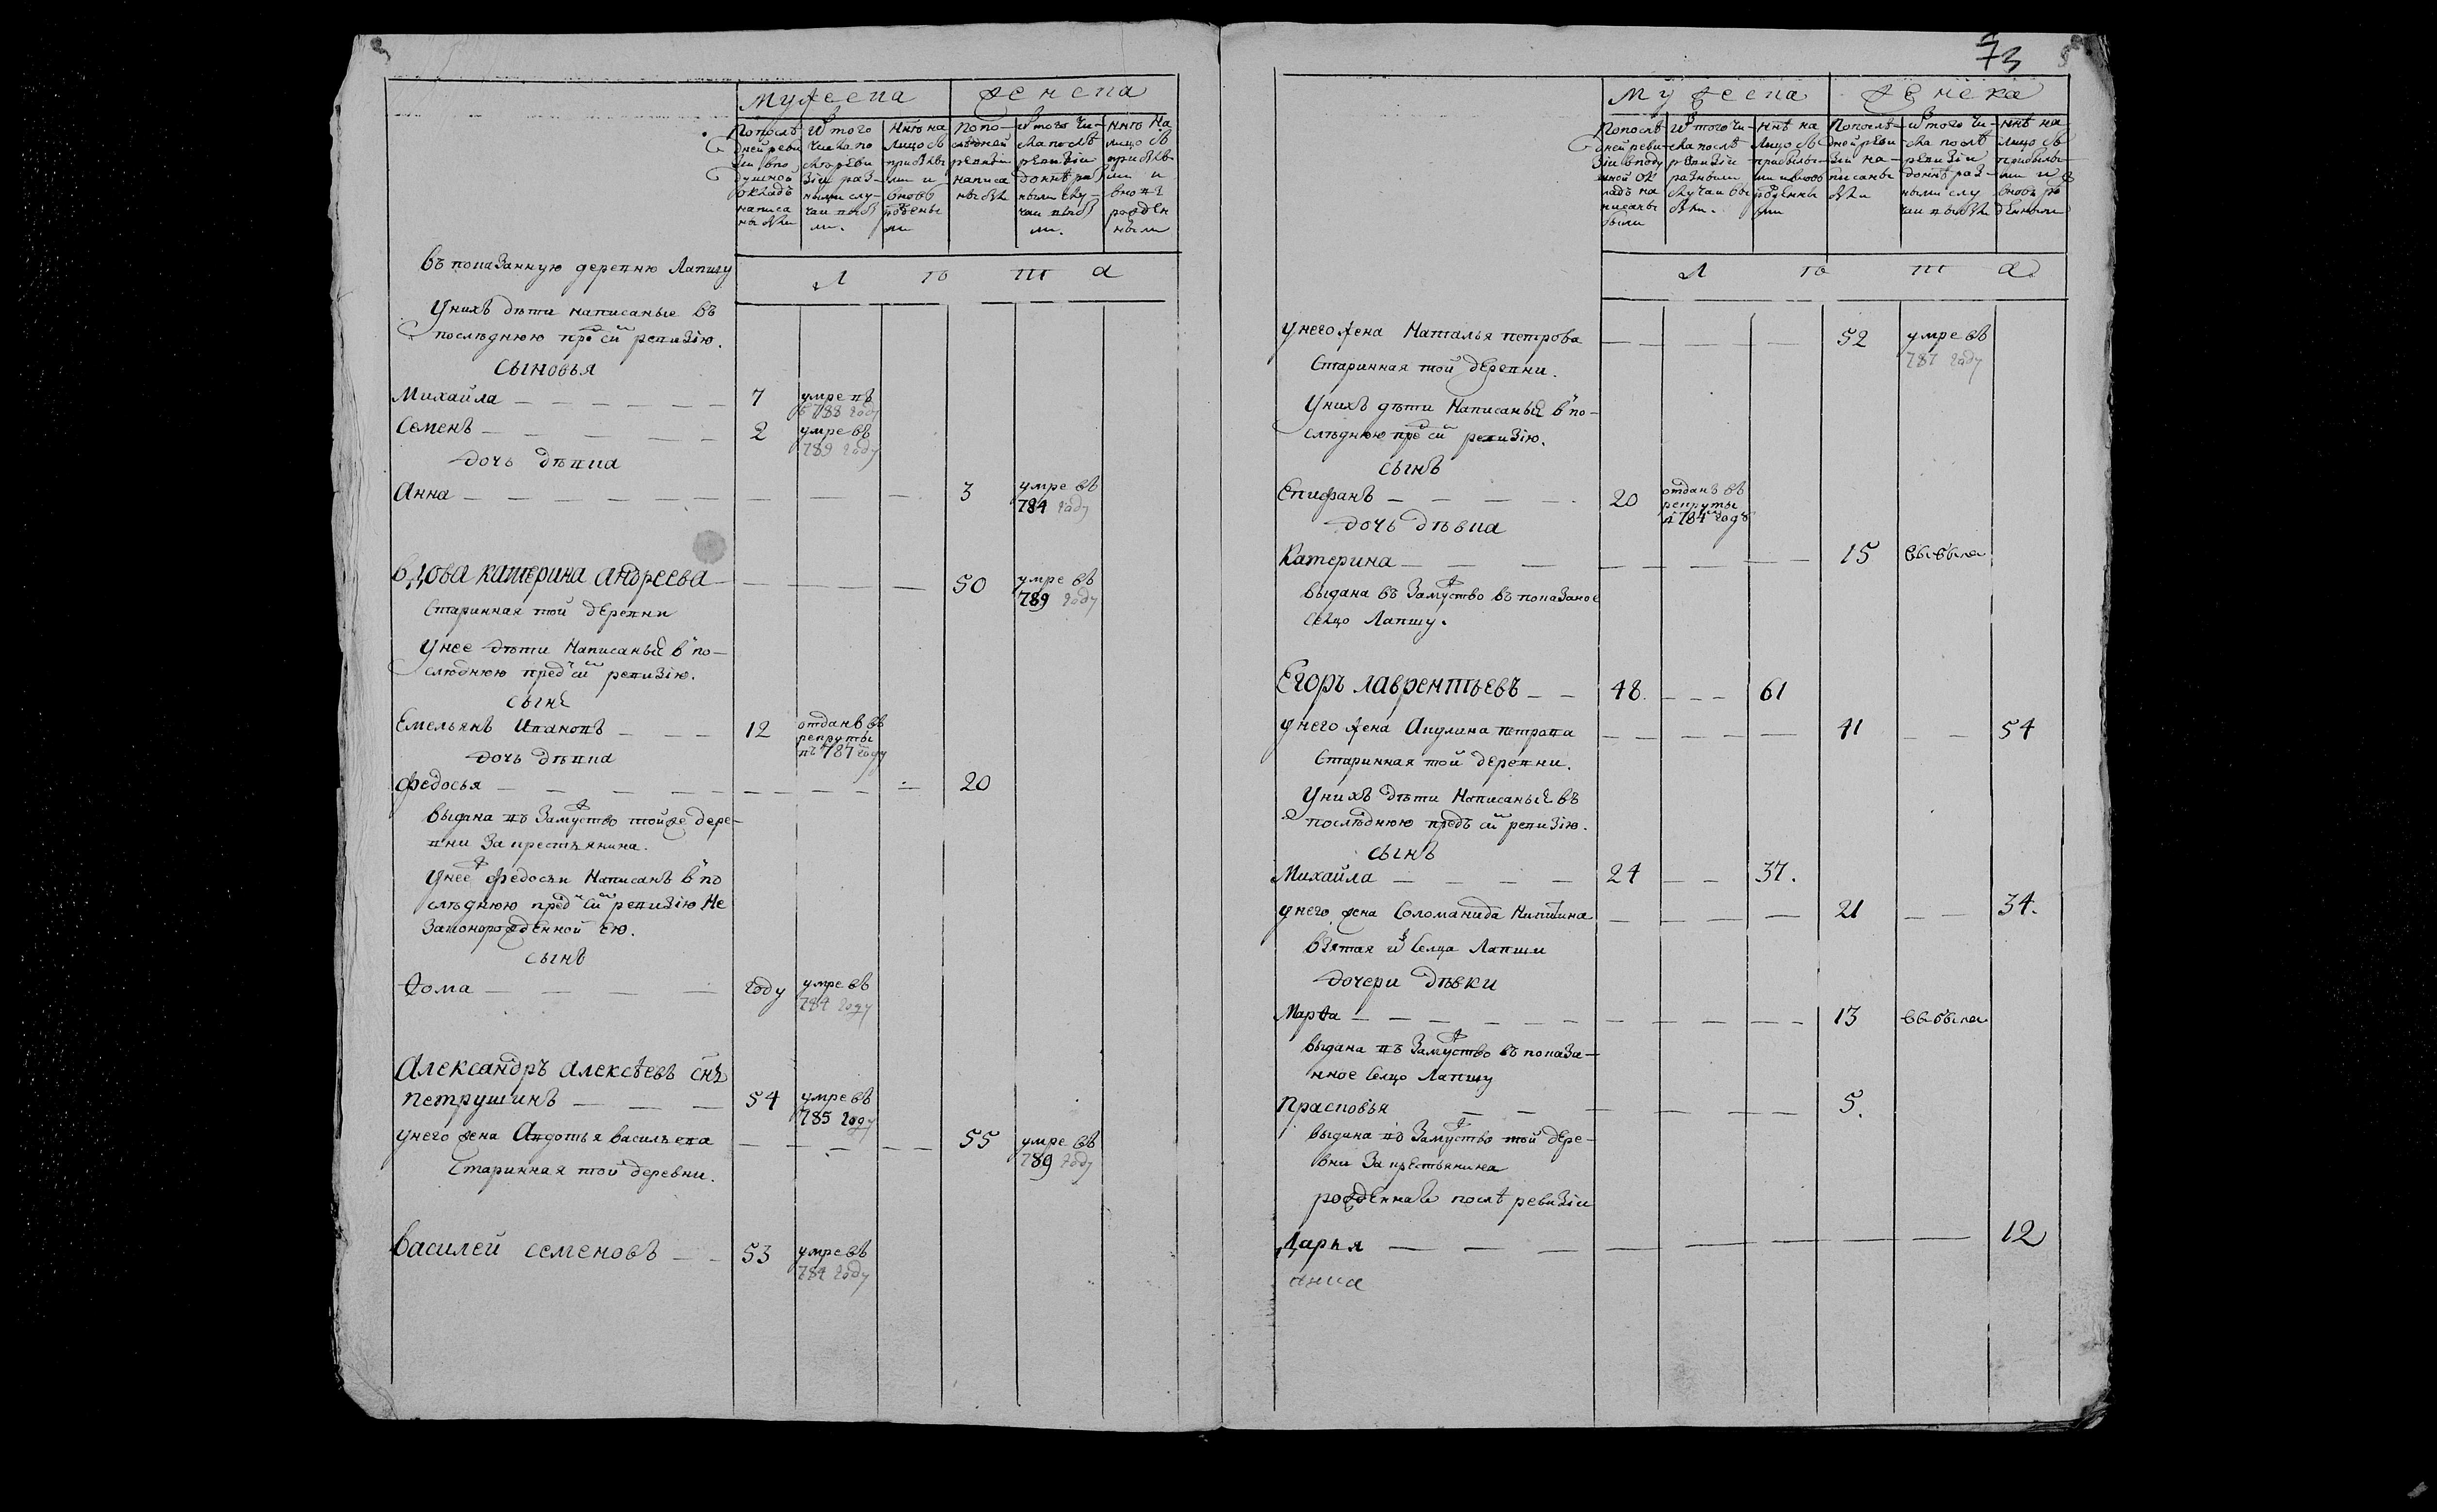 73
мужеска женска
По послѣ
дней реви
зіи в по
душной
окладъ
написа
ны были
И того
числа по
слѣ реви
зіи раз-
ными слу-
чаи выбы
ли.
Ннѣ на
лицо съ
прибылы
ми и
вновь
рожденны
ми
По по-
слѣдней
ревизіи
написа
ны были
И того чи-
сла послѣ
ревизіи
до ннѣ раз
ными слу-
чаи выбы
ли.
Ннѣ на
лицо съ
прибылы-
ми и
вновь
рожден
ными
Л ѣ т а
въ показанную деревню Лапшу
У нихъ дѣти написаные въ
последнюю предъ сй ревизію.
сыновья
Михайла 7 умре въ
788 году
Семенъ 2 умре въ
789 году
дочь дѣвка
Анна 3 умре въ
784 году
вдова катерина андреева 50 умре въ
789 году
Старинная той деревни
У нее дѣти Написаныя в по-
слѣднюю предъ сй ревизію.
сынъ
Емельянъ Ивановъ 12 отданъ въ
рекруты
въ 787 году
дочь дѣвка
федосья 20
выдана въ Замужство той же дере-
вни За крестьянина.
У нее ж федосьи Написанъ в по
слѣднюю предъ сй ревизію Не
Законорожденной ею.
сынъ
Ѳома году умре въ
784 году
Александръ алексѣевъ снъ
петрушинъ 54 умре въ
785 году
У него жена Авдотья васильева 55 умре въ
789 году
Старинная той деревни.
Василей семеновъ 53 умре въ
784 году
мужеска женска
По послѣ
дней реви-
зіи в поду
шной ок
ладъ на
писаны
были
И того чи-
сла послѣ
ревизіи
разными
случаи вы
были.
Ннѣ на
лицо съ
прибылы-
ми и вновь
рожденны
ми
По послѣ-
дней реви-
зіи на-
писаны
были
И того чи-
сла послѣ
ревизіи
до ннѣ раз-
ными слу
чаи выбыли
Ннѣ на
лицо съ
прибылы-
ми и
вновь ро
жденными
Л ѣ т а
У него жена Наталья петрова 52 умре въ
787 году
Старинная той деревни.
У нихъ дѣти Написаныя в по-
слѣднюю предъ сй ревизію.
сынъ
Епифанъ 20 отданъ въ
рекруты
в 784 году
дочь дѣвка
Катерина 15 выбыла
выдана въ Замужство въ показаное
селцо Лапшу.
Егоръ лаврентьевъ 48 61
У него жена Акулина петрова 41 54
Старинная той деревни.
У нихъ дѣти Написаныя въ
послѣднюю предъ сй ревизію.
сынъ
Михайла 24 37.
У него жена Соломанида Никитина 21 34.
взятая из селца Лапши
дочери дѣвки
Марѳа 13 выбыла
выдана въ Замужство въ показа-
нное селцо Лапшу
Прасковья 5.
выдана въ Замужство той дере-
вни За крестьянина
рожденная послѣ ревизіи
Дарья 12